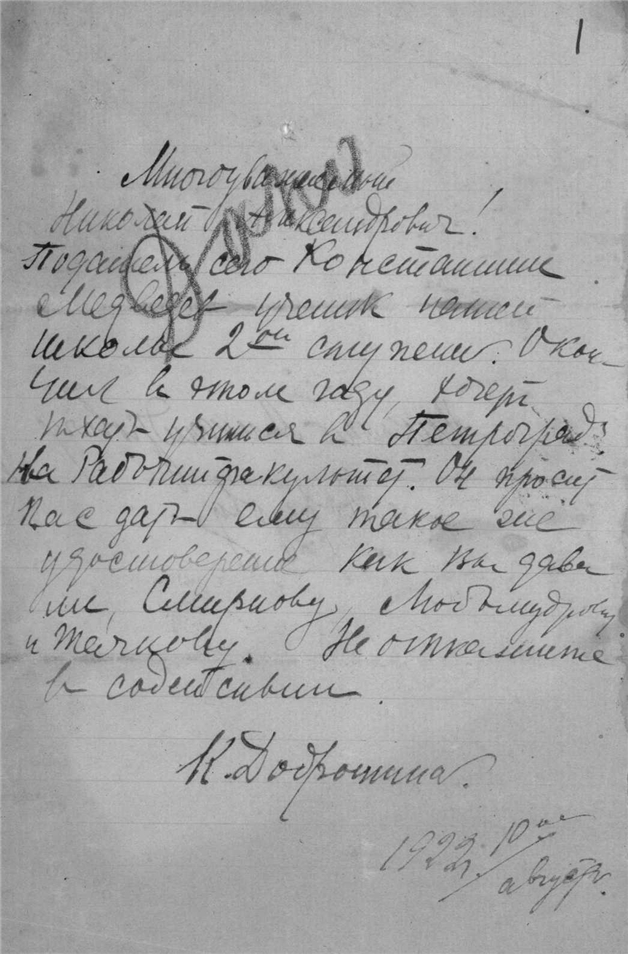 1
Многоуважаемый
Николай Александрович!
Податель сего Константин
Медведев ученик нашей
школы 2ой ступени. Окон-
чил в этом году, хочет
ехать учиться в Петроград
на Рабочий факультет. Он просит
Вас дать ему такое же
удостоверение как Вы дава
ли, Смирнову, Любомудрову
и Тячкову. Не откажите
в содействии.
К. Доброти­на.
1922 г. 10го
августа.